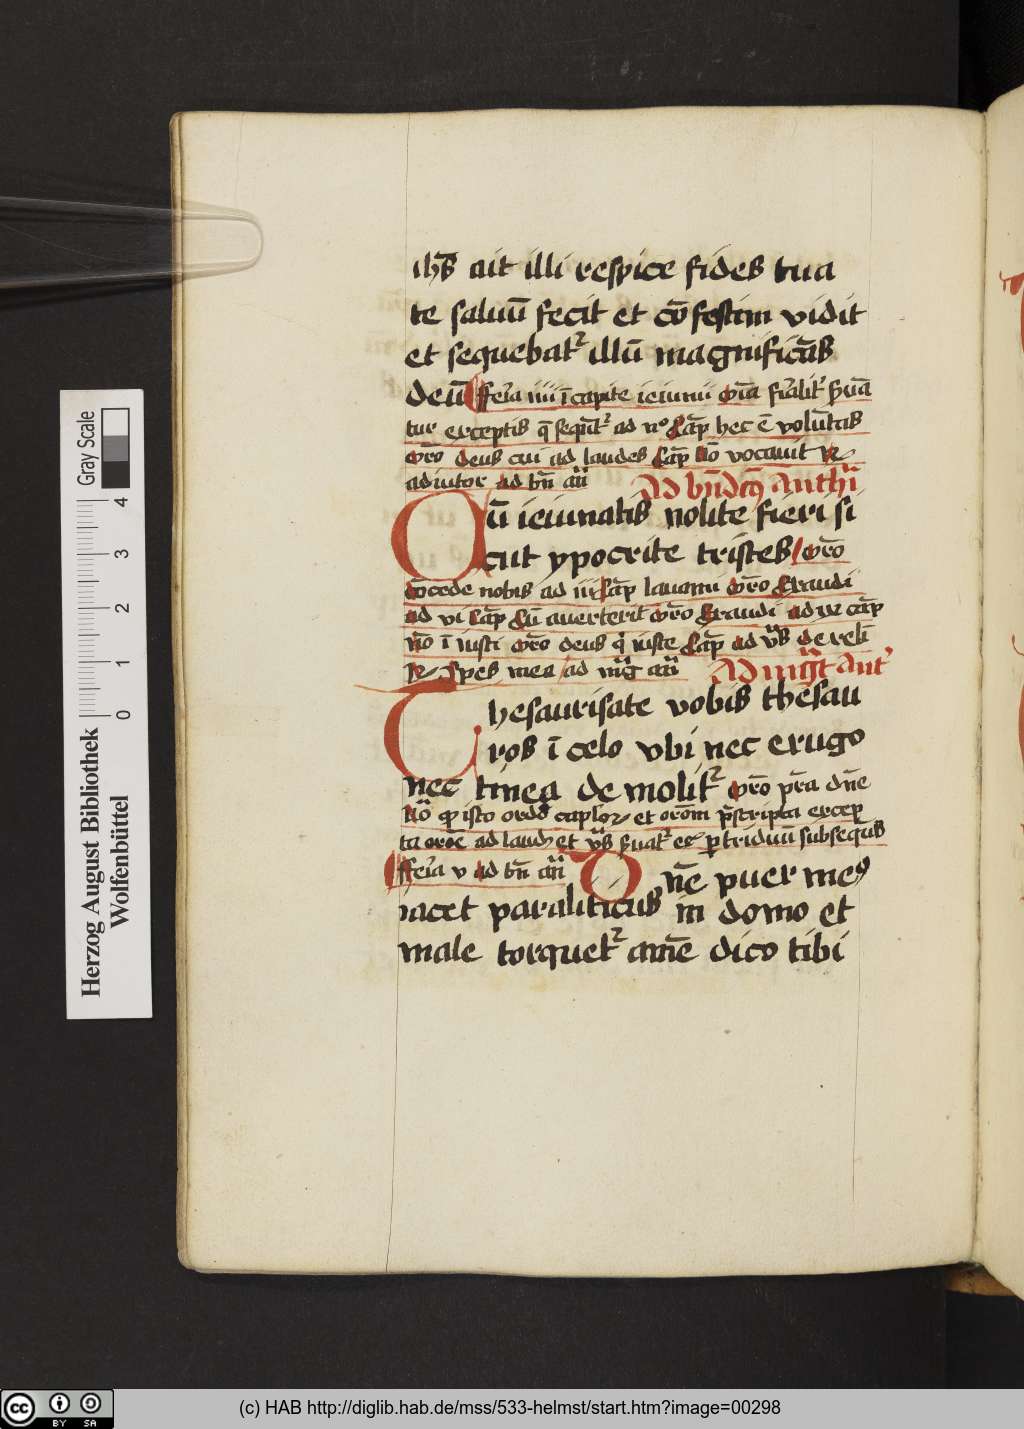 ihs̄ ait illi respice fides tua
te saluū fecit et cōfestim vidit
et sequebat᷑ illū magnificās
deū ffer̄ia iiii ī capite ieiunii om̄ia fr̄ialit᷑ ẜuā
tur exceptis q̄ sequūt᷑ ad nº Cap̄ hec ē volūtas
or̄o deus cui ad laudes Cap̄ Nō vocauit R
adiutor ad bn̄ an̄
Ad bn̄dc̄ꝯ Anthi᷑
Cū ieiunatis nolite fieri si
cut ypocrite tristes or̄o
Cōcede nobis ad iii Cap̄ lauami or̄o Exaudi
ad vi Cap̄ Cū auerterit or̄o Exaudi ad ix cap̄
nō ī iusti or̄o deus q̇ iuste Cap̄ ad vs̄ de reli
R Spes mea ad mg̅ an̄
Ad mg̅t Ant᷑
Thesaurisate vobis thesau
ros ī celo vbi nec erugo
nec tinea demolit᷑ or̄o pr̄a dn̄e
Nō ꝙ isto ordo caplorꝝ et orōm p̄scripta excep
ta oroē ad laudꝫ et vs̄ ẜuat᷑ ec ꝑ triduū subsequēs
ffer̄ia v Ad bn̄ an̄ Dn̄e puer meꝰ
iacet paraliticus in domo et
male torquet᷑ amē dico tibi
Gray Scale
4
3
2
1
0
Herzog August Bibliothek
Wolfenbüttel
cc
BY SA
(c) HAB http://diglib.hab.de/mss/533-helmst/start.htm?image=00298